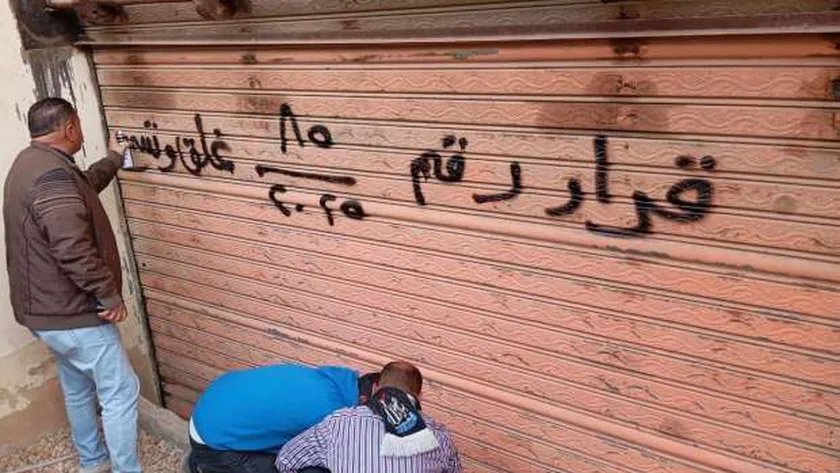 قرار رقم ٨٥ / ٢٠٢٥ غلق وتشميع